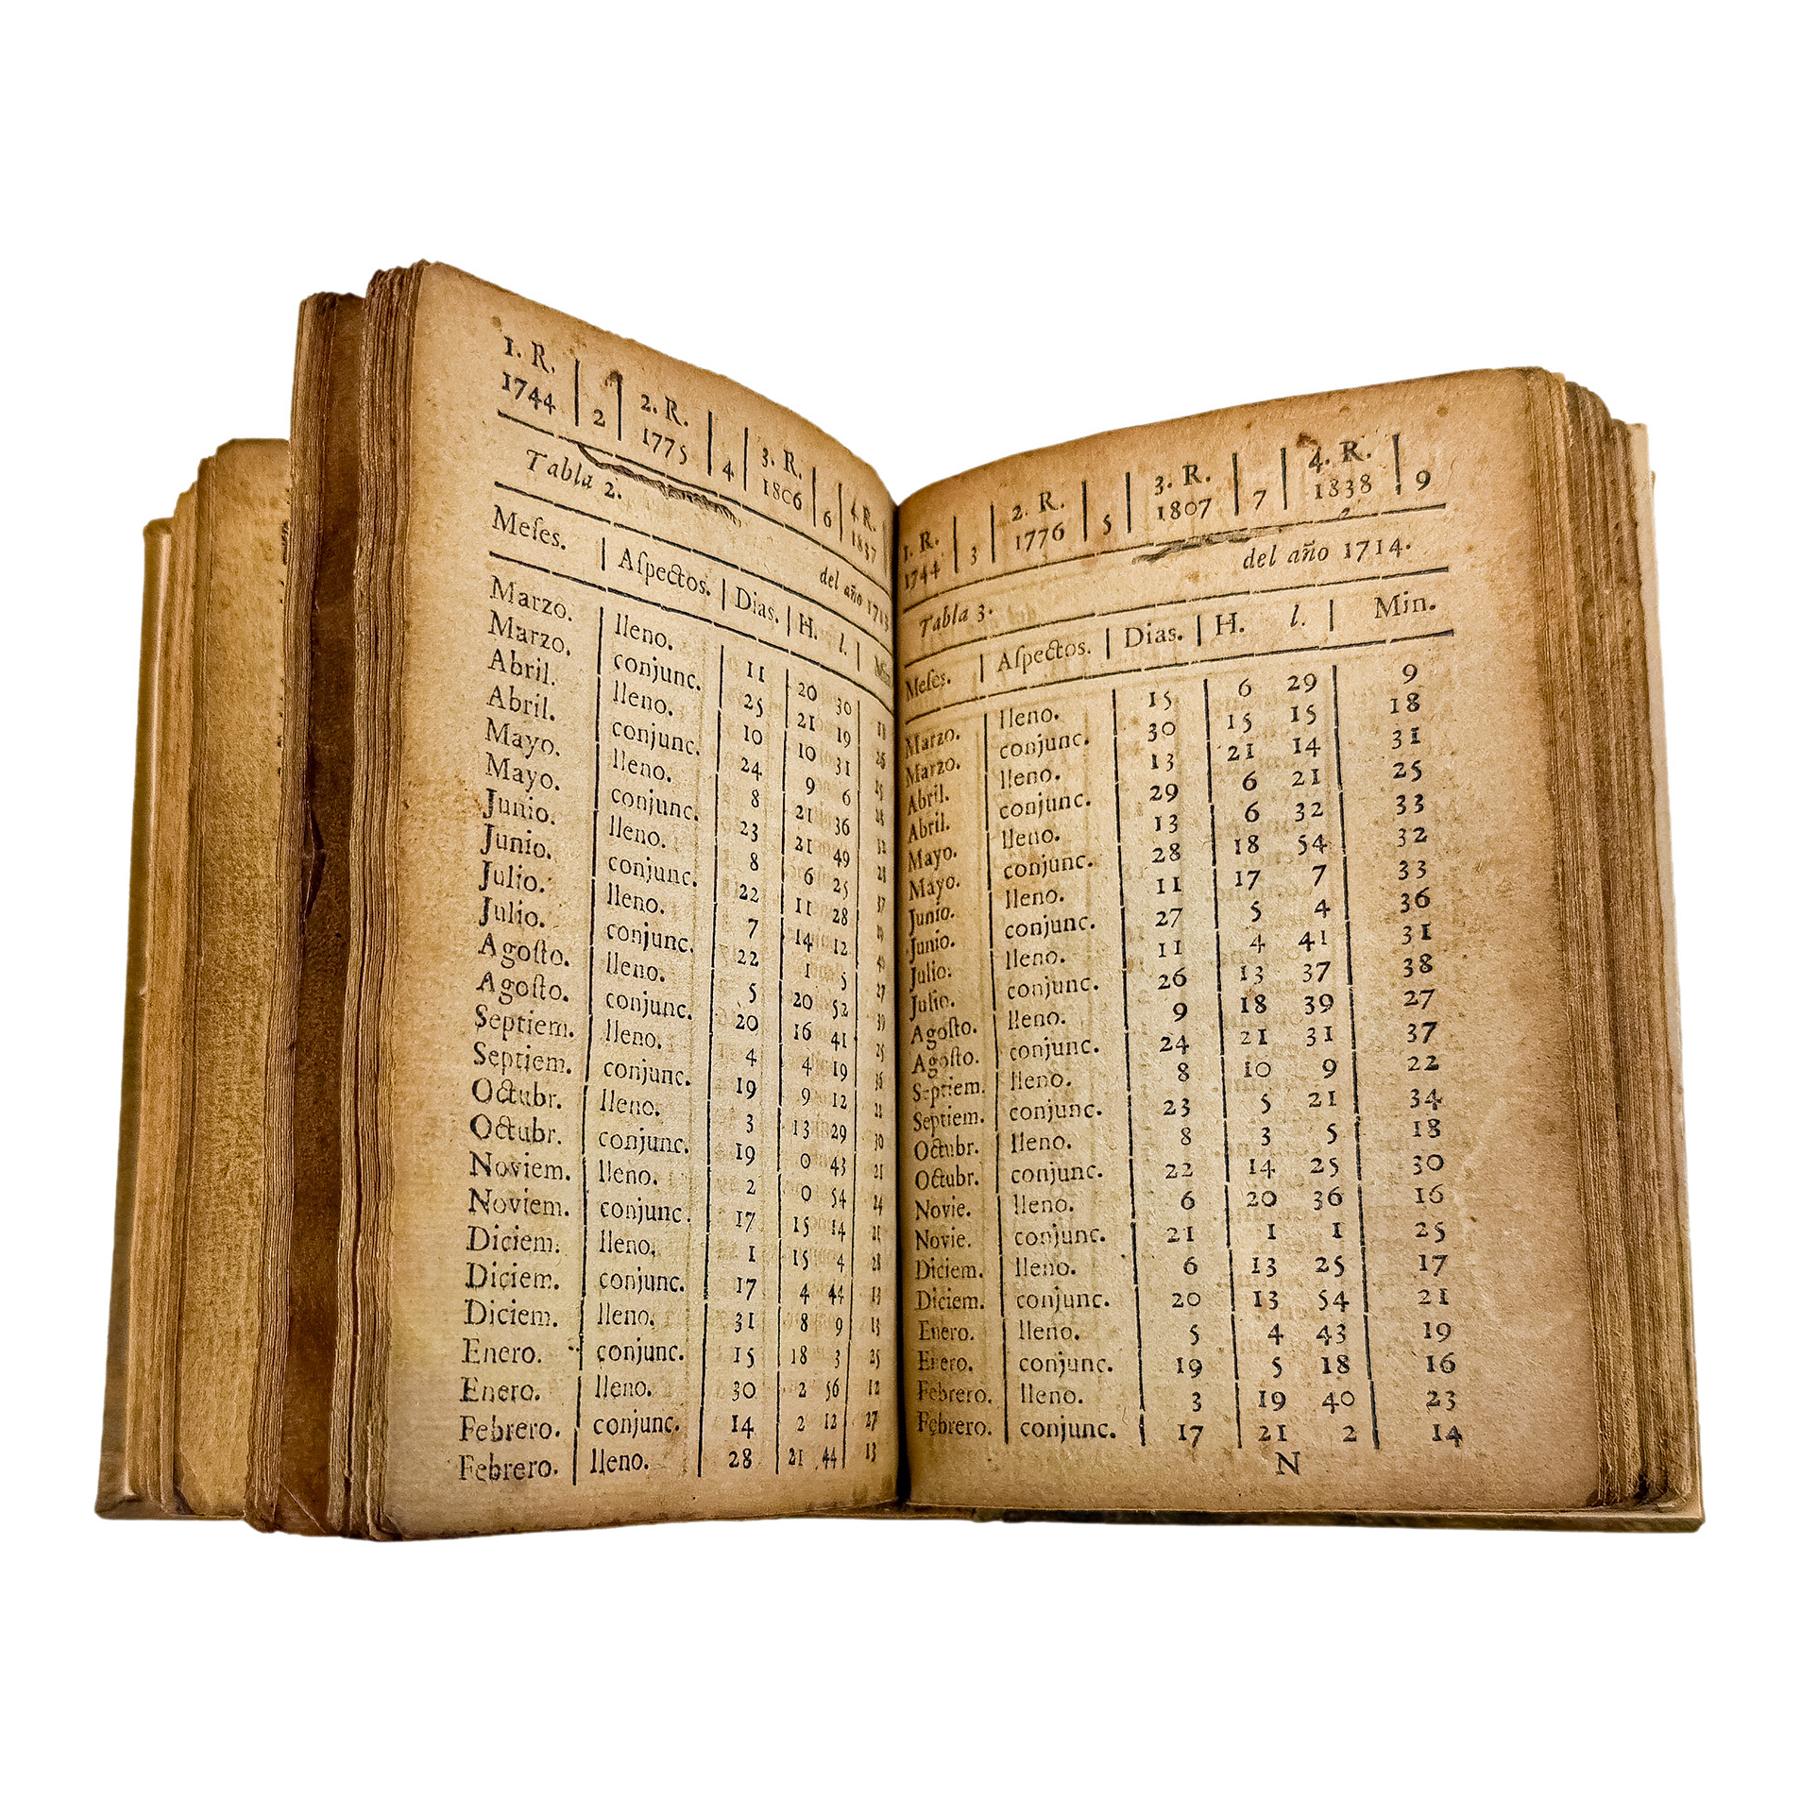 1. R. | | 2. R. | | 3. R. | | 4. R.
1744 | 2 | 1775 | 4 | 1806 | 6 | 1837
Tabla 2. del año 1713
Meſes. | Aſpectos. | Dias. | H. l. | Min.
Marzo. lleno. 11 20 30
Marzo. conjunc. 25 21 19 26
Abril. lleno. 10 10 31
Abril. conjunc. 24 9 6
Mayo. lleno. 8 21 36
Mayo. conjunc. 23 21 49 28
Junio. lleno. 8 6 25 37
Junio. conjunc. 22 11 28
Julio. lleno. 7 14 12
Julio. conjunc. 22 1 5 27
Agoſto. lleno. 5 20 52 39
Agoſto. conjunc. 20 16 41 25
Septiem. lleno. 4 4 19
Septiem. conjunc. 19 9 12
Octubr. lleno. 3 13 29 30
Octubr. conjunc. 19 0 43 21
Noviem. lleno. 2 0 54 24
Noviem. conjunc. 17 15 14
Diciem. lleno, 1 15 4 28
Diciem. conjunc. 17 4 44 13
Diciem. lleno. 31 8 9 13
Enero. conjunc. 15 18 3 25
Enero. lleno. 30 2 56 12
Febrero. conjunc. 14 2 12 27
Febrero. lleno. 28 21 44 13
1. R. | | 2. R. | | 3. R. | | 4. R. |
1744 | 3 | 1776 | 5 | 1807 | 7 | 1838 | 9
Tabla 3. del año 1714.
Meſes. | Aſpectos. | Dias. | H. l. | Min.
Marzo. lleno. 15 6 29 9
Marzo. conjunc. 30 15 15 18
Abril. lleno. 13 21 14 31
Abril. conjunc. 29 6 21 25
Mayo. lleno. 13 6 32 33
Mayo. conjunc. 28 18 54 32
Junio. lleno. 11 17 7 33
Junio. conjunc. 27 5 4 36
Julio. lleno. 11 4 41 31
Julio. conjunc. 26 13 37 38
Agoſto. lleno. 9 18 39 27
Agoſto. conjunc. 24 21 31 37
Septiem. lleno. 8 10 9 22
Septiem. conjunc. 23 5 21 34
Octubr. lleno. 8 3 5 18
Octubr. conjunc. 22 14 25 30
Novie. lleno. 6 20 36 16
Novie. conjunc. 21 1 1 25
Diciem. lleno. 6 13 25 17
Diciem. conjunc. 20 13 54 21
Enero. lleno. 5 4 43 19
Enero. conjunc. 19 5 18 16
Febrero. lleno. 3 19 40 23
Febrero. conjunc. 17 21 2 14
N